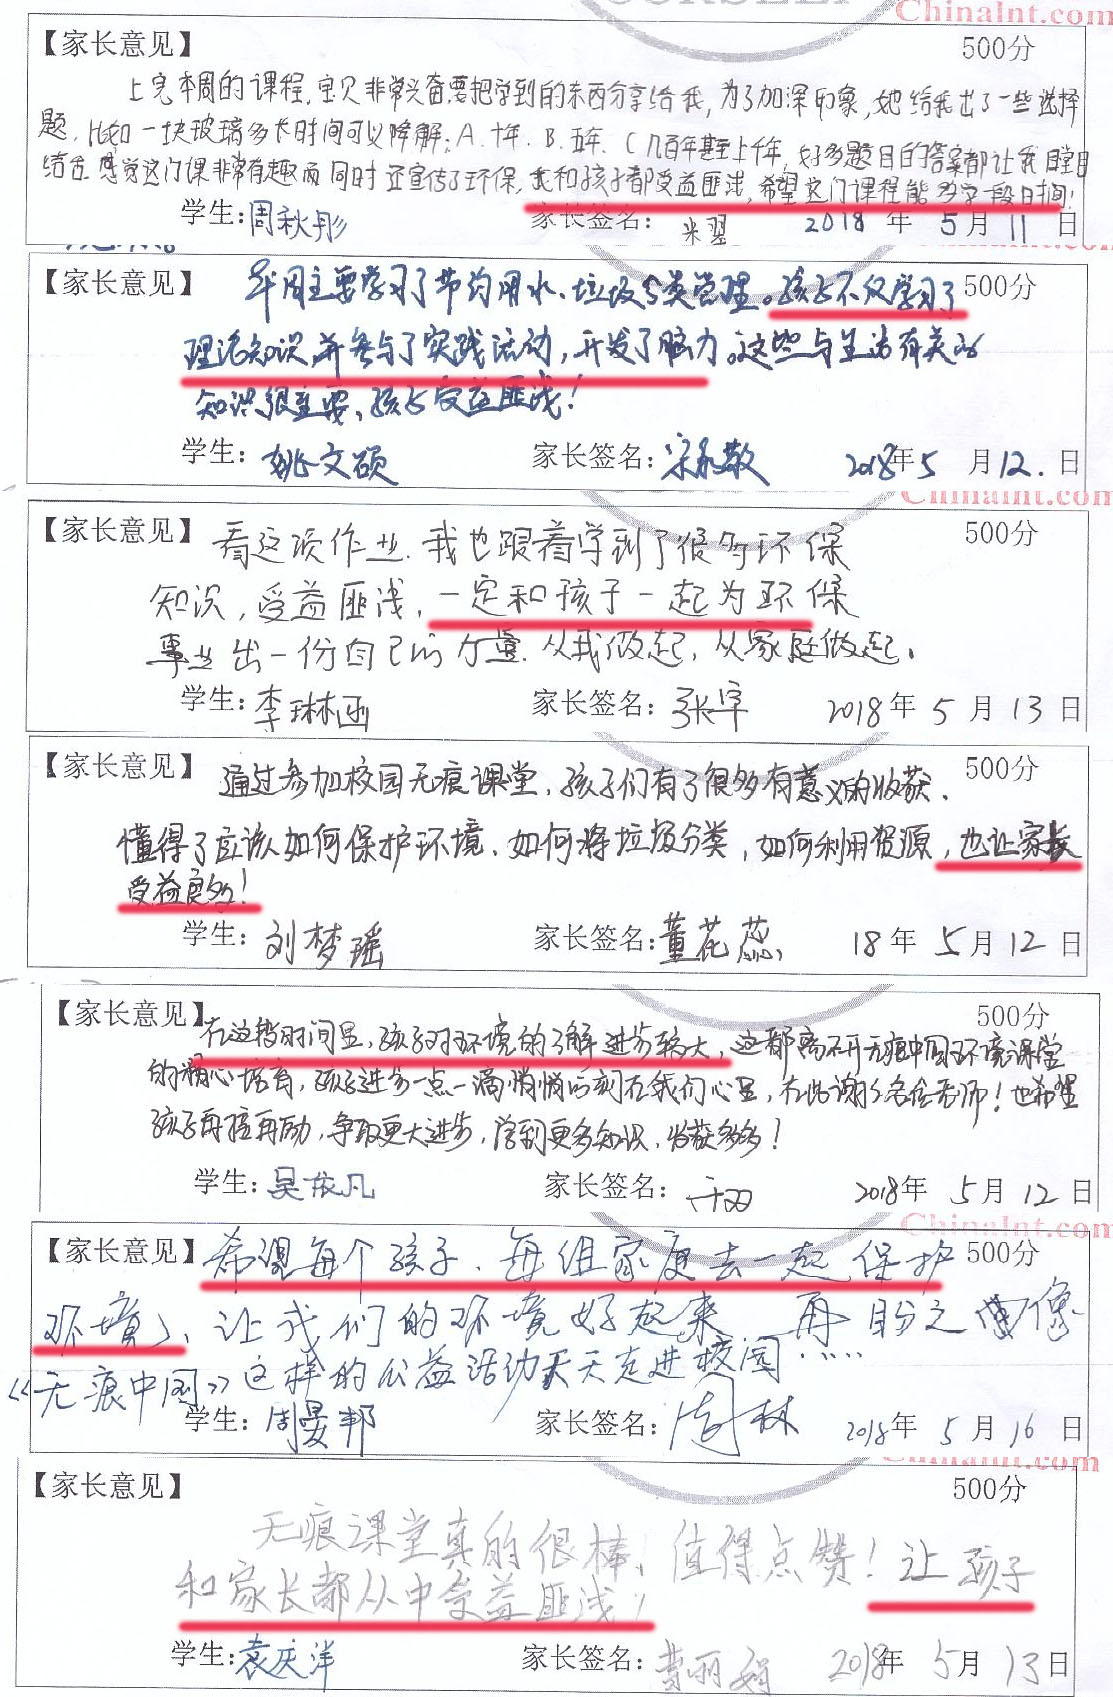 ChinaInt.com
【家长意见】 500分
上完本周的课程,宝贝非常兴奋要把学到的东西分享给我,为了加深印象,她给我出了一些选择
题,比如一块玻璃多长时间可以降解:A.十年.B.五年.C几百年甚至上千年,好多题目的答案都让我目瞪口
结舌 感觉这门课非常有趣而同时还宣传了环保,我和孩子都受益匪浅,希望这门课程能多学一段时间!
学生:周秋彤 家长签名: 米翠 2018年5月11日
【家长意见】 500分
本周主要学习了节约用水、垃圾分类管理。孩子不仅学习了
理论知识并参与了实践活动,开发了脑力。这些与生活有关的
知识很重要,孩子受益匪浅!
学生:姚文硕 家长签名:宋永敬 2018年5月12.日
ChinaInt.com
【家长意见】 500分
看这项作业.我也跟着学到了很多环保
知识,受益匪浅,一定和孩子一起为环保
事业出一份自己的力量.从我做起,从家庭做起.
学生:李琳函 家长签名:张宇 2018年5月13日
【家长意见】 500分
通过参加校园无痕课堂,孩子们有了很多有意义的收获.
懂得了应该如何保护环境、如何将垃圾分类,如何利用资源,也让家长
受益良多!
学生:刘梦瑶 家长签名:董花蕊 18年5月12日
【家长意见】 500分
在这段时间里,孩子对环境的了解进步较大,这都离不开无痕中国环境课堂
的精心培育,孩子进步一点一滴悄悄的刻在我们心里,在此谢谢各位老师!也希望
孩子再接再励,争取更大进步,学到更多知识,收获多多!
学生:吴依凡 家长签名: 2018年5月12日
ChinaInt.com
【家长意见】 500分
希望每个孩子.每组家庭去一起保护
环境,让我们的环境好起来 再盼之 像
《无痕中国》这样的公益活动天天走进校园.....
学生:周晏邦 家长签名:周林 2018年5月16日
ChinaInt.com
【家长意见】 500分
无痕课堂真的很棒,值得点赞!让孩子
和家长都从中受益匪浅!
学生:袁庆洋 家长签名:曹丽娟 2018年5月13日